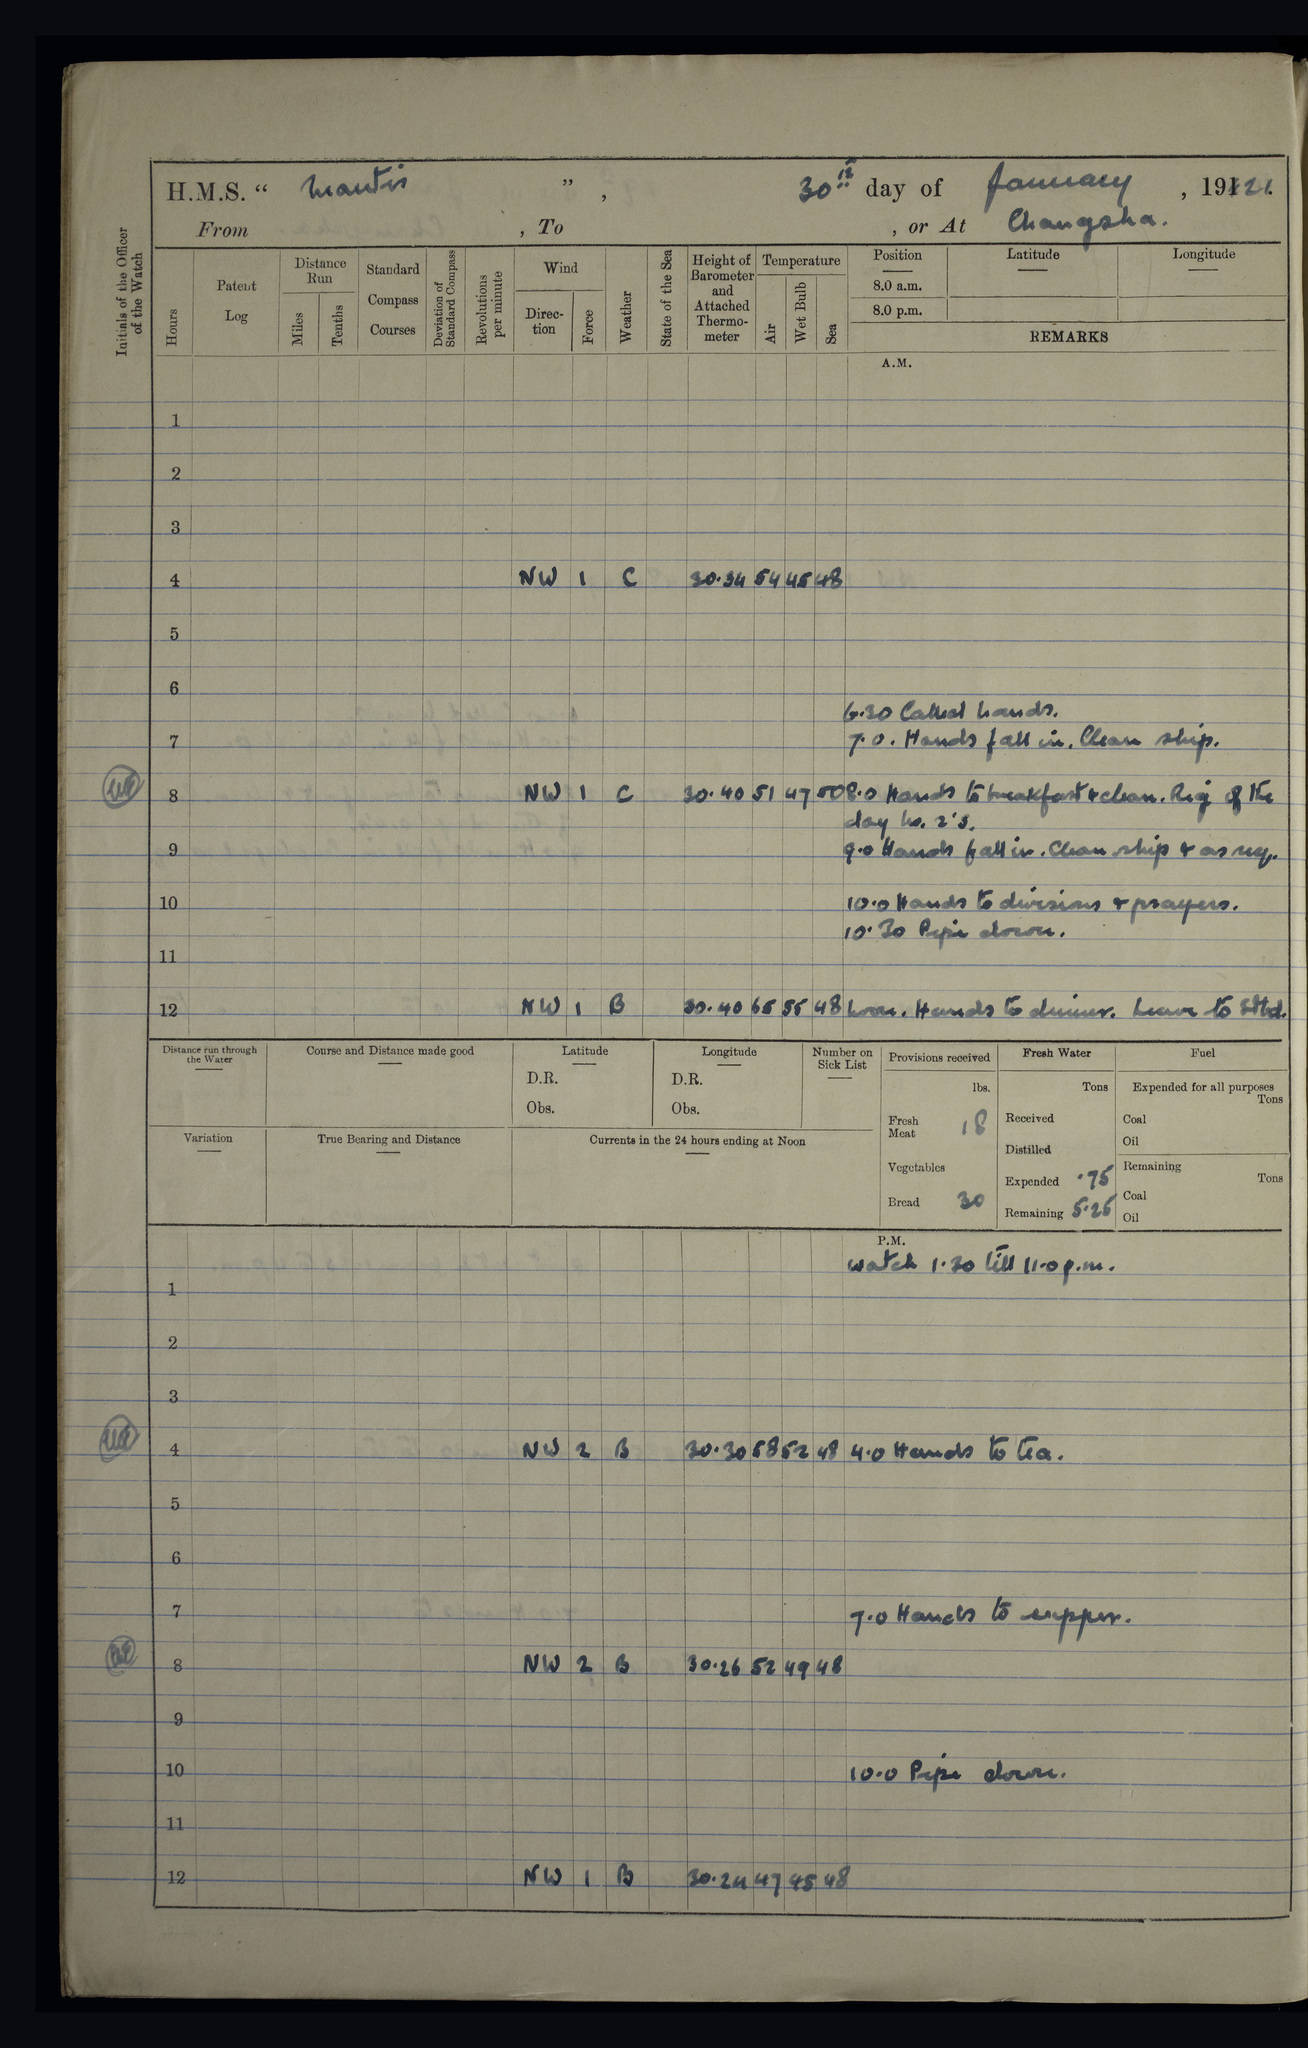 H.M.S. “ Mantis ” , 30th day of January , 1921.
From , To , or At Changsha.
Initials of the Officer of the Watch
Hours
Patent Log
Distance Run
Miles
Tenths
Standard Compass Courses
Deviation of Standard Compass
Revolutions per minute
Wind
Direction
Force
Weather
State of the Sea
Height of Barometer and Attached Thermometer
Temperature
Air
Wet Bulb
Sea
Position
8.0 a.m.
8.0 p.m.
Latitude
Longitude
REMARKS
A.M.
1
2
3
4 NW 1 C 30.34 54 45 48
5
6
6.30 Called hands.
7 7.0. Hands fall in. Clean ship.
8 NW 1 C 30.40 51 47 50 8.0 Hands to breakfast & clean. Rig of the
day No. 2's.
9 9.0 Hands fall in. Clean ship & as req.
10 10.0 Hands to divisions & prayers.
10.30 Pipe down.
11
12 NW 1 B 30.40 65 55 48 Noon. Hands to dinner. Leave to Stbd.
Distance run through the Water
Course and Distance made good
Latitude
D.R.
Obs.
Longitude
D.R.
Obs.
Number on Sick List
Provisions received
lbs.
Fresh Meat 18
Vegetables
Bread 30
Fresh Water
Tons
Received
Distilled
Expended .75
Remaining 5.25
Fuel
Expended for all purposes
Tons
Coal
Oil
Remaining
Tons
Coal
Oil
Variation
True Bearing and Distance
Currents in the 24 hours ending at Noon
P.M.
watch 1.30 till 11.0 p.m.
1
2
3
4 NW 2 B 30.30 58 52 48 4.0 Hands to tea.
5
6
7 7.0 Hands to supper.
8 NW 2 B 30.26 52 49 48
9
10 10.0 Pipe down.
11
12 NW 1 B 30.24 47 45 48